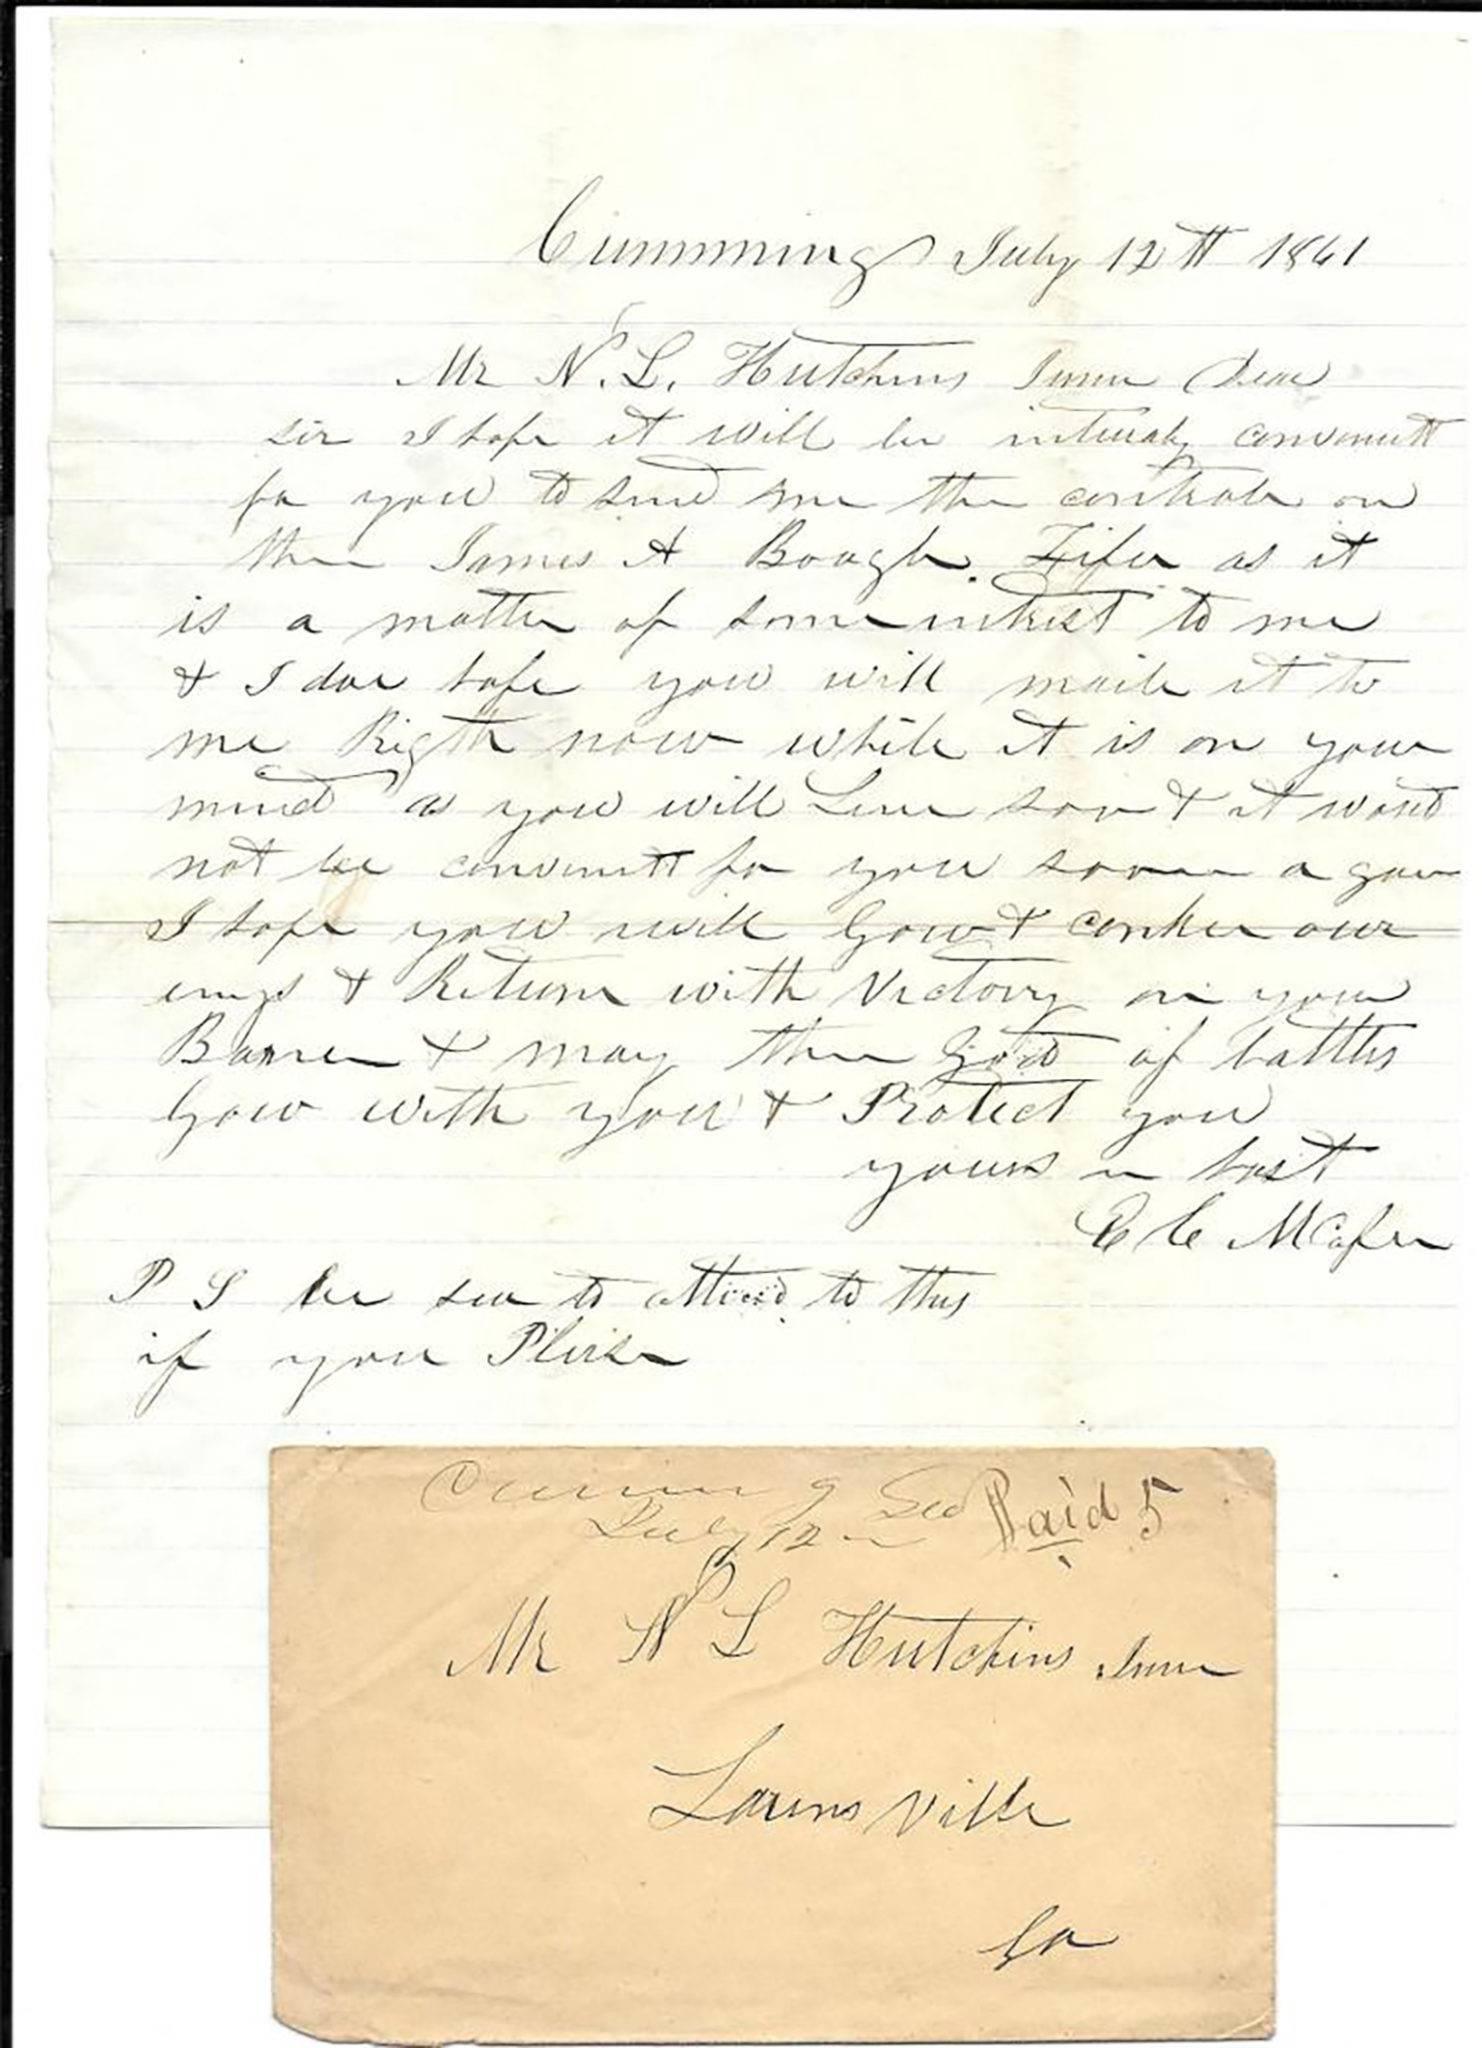 Cumming July 12tt 1861
Mr N. L. Hutchins Junr Dear
sir I hope it will be convenitt
for you to send me the on
the James A Bough Fifer as it
is a matter of some intrest to me
& I doe hope you will maile it to
me Rigth now while it is on your
mind as you will Leve soon & it wont
not be convenitt for you soon a gan
I hope you will Gow & conker our
& Return with Victory on your
Banner & may the God of battles
Gow with you & Protect you
yours in hast
C McAfee
P S be sure to attend to this
if you Pleise
Cumming Geo Paid 5
July 12
Mr N L Hutchins Junr
Larensville
Ga